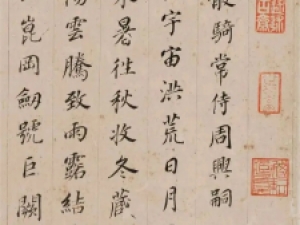 散騎常侍周興嗣
宇宙洪荒日月
暑往秋收冬藏
雲騰致雨露結
崑岡劒號巨闕